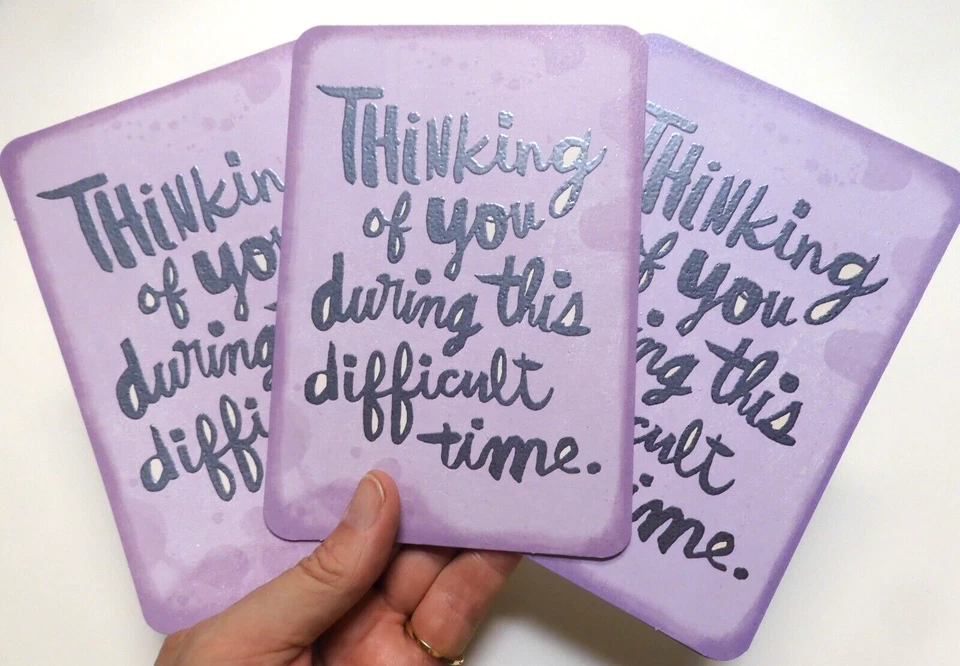 THiNkin
of you
during
diffi
THiNking
of you
during this
difficult
time.
THiNking
of you
ing this
cult
ime.